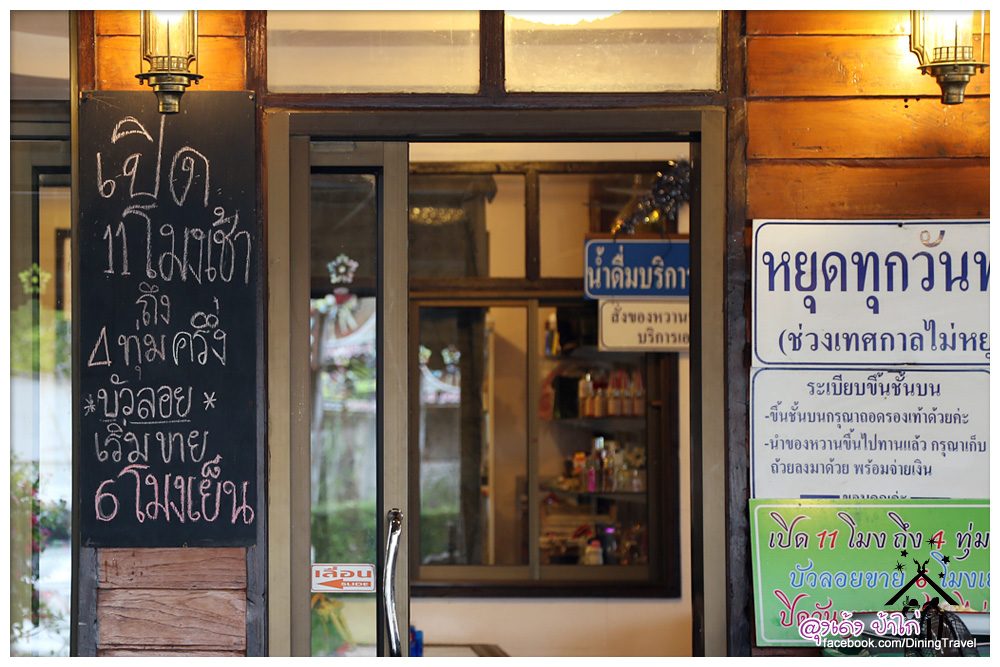 เปิด
11 โมงเช้า
ถึง
4 ทุ่มครึ่ง
*บัวลอย*
เริ่มขาย
6 โมงเย็น
น้ำดื่มบริการ
สั่งของหวาน
บริการ
เลื่อน
SLIDE
หยุดทุกวัน
(ช่วงเทศกาลไม่หยุ
ระเบียบขึ้นชั้นบน
-ขึ้นชั้นบนกรุณาถอดรองเท้าด้วยค่ะ
-นำของหวานขึ้นไปทานแล้ว กรุณาเก็บ
ถ้วยลงมาด้วย พร้อมจ่ายเงิน
ขอบคุณค่ะ
เปิด 11 โมง ถึง 4 ทุ่ม
บัวลอยขาย 6 โมงเ
ปิดวัน
ลุงเด้ง ป้าไก่
facebook.com/DiningTravel